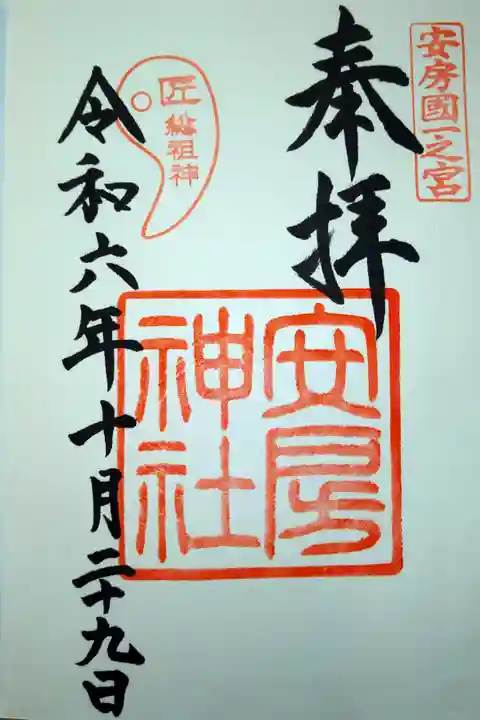 安房國一之宮
奉拝
安房
神社
匠
総祖神
令和六年十月二十九日